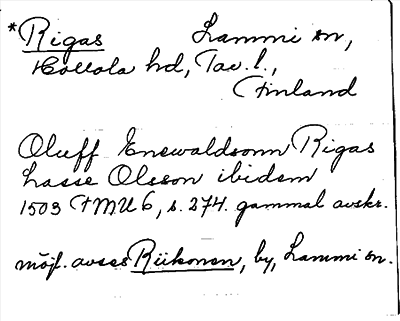 *Rigas Lammi sn,
Hollola hd, Tav. l.,
Finland
Oluff Enewaldsonn Rigas
Lasse Olsson ibidem
1503 FMU 6, s. 274. gammal avskr.
möjl. avses Riikonen, by, Lammi sn.